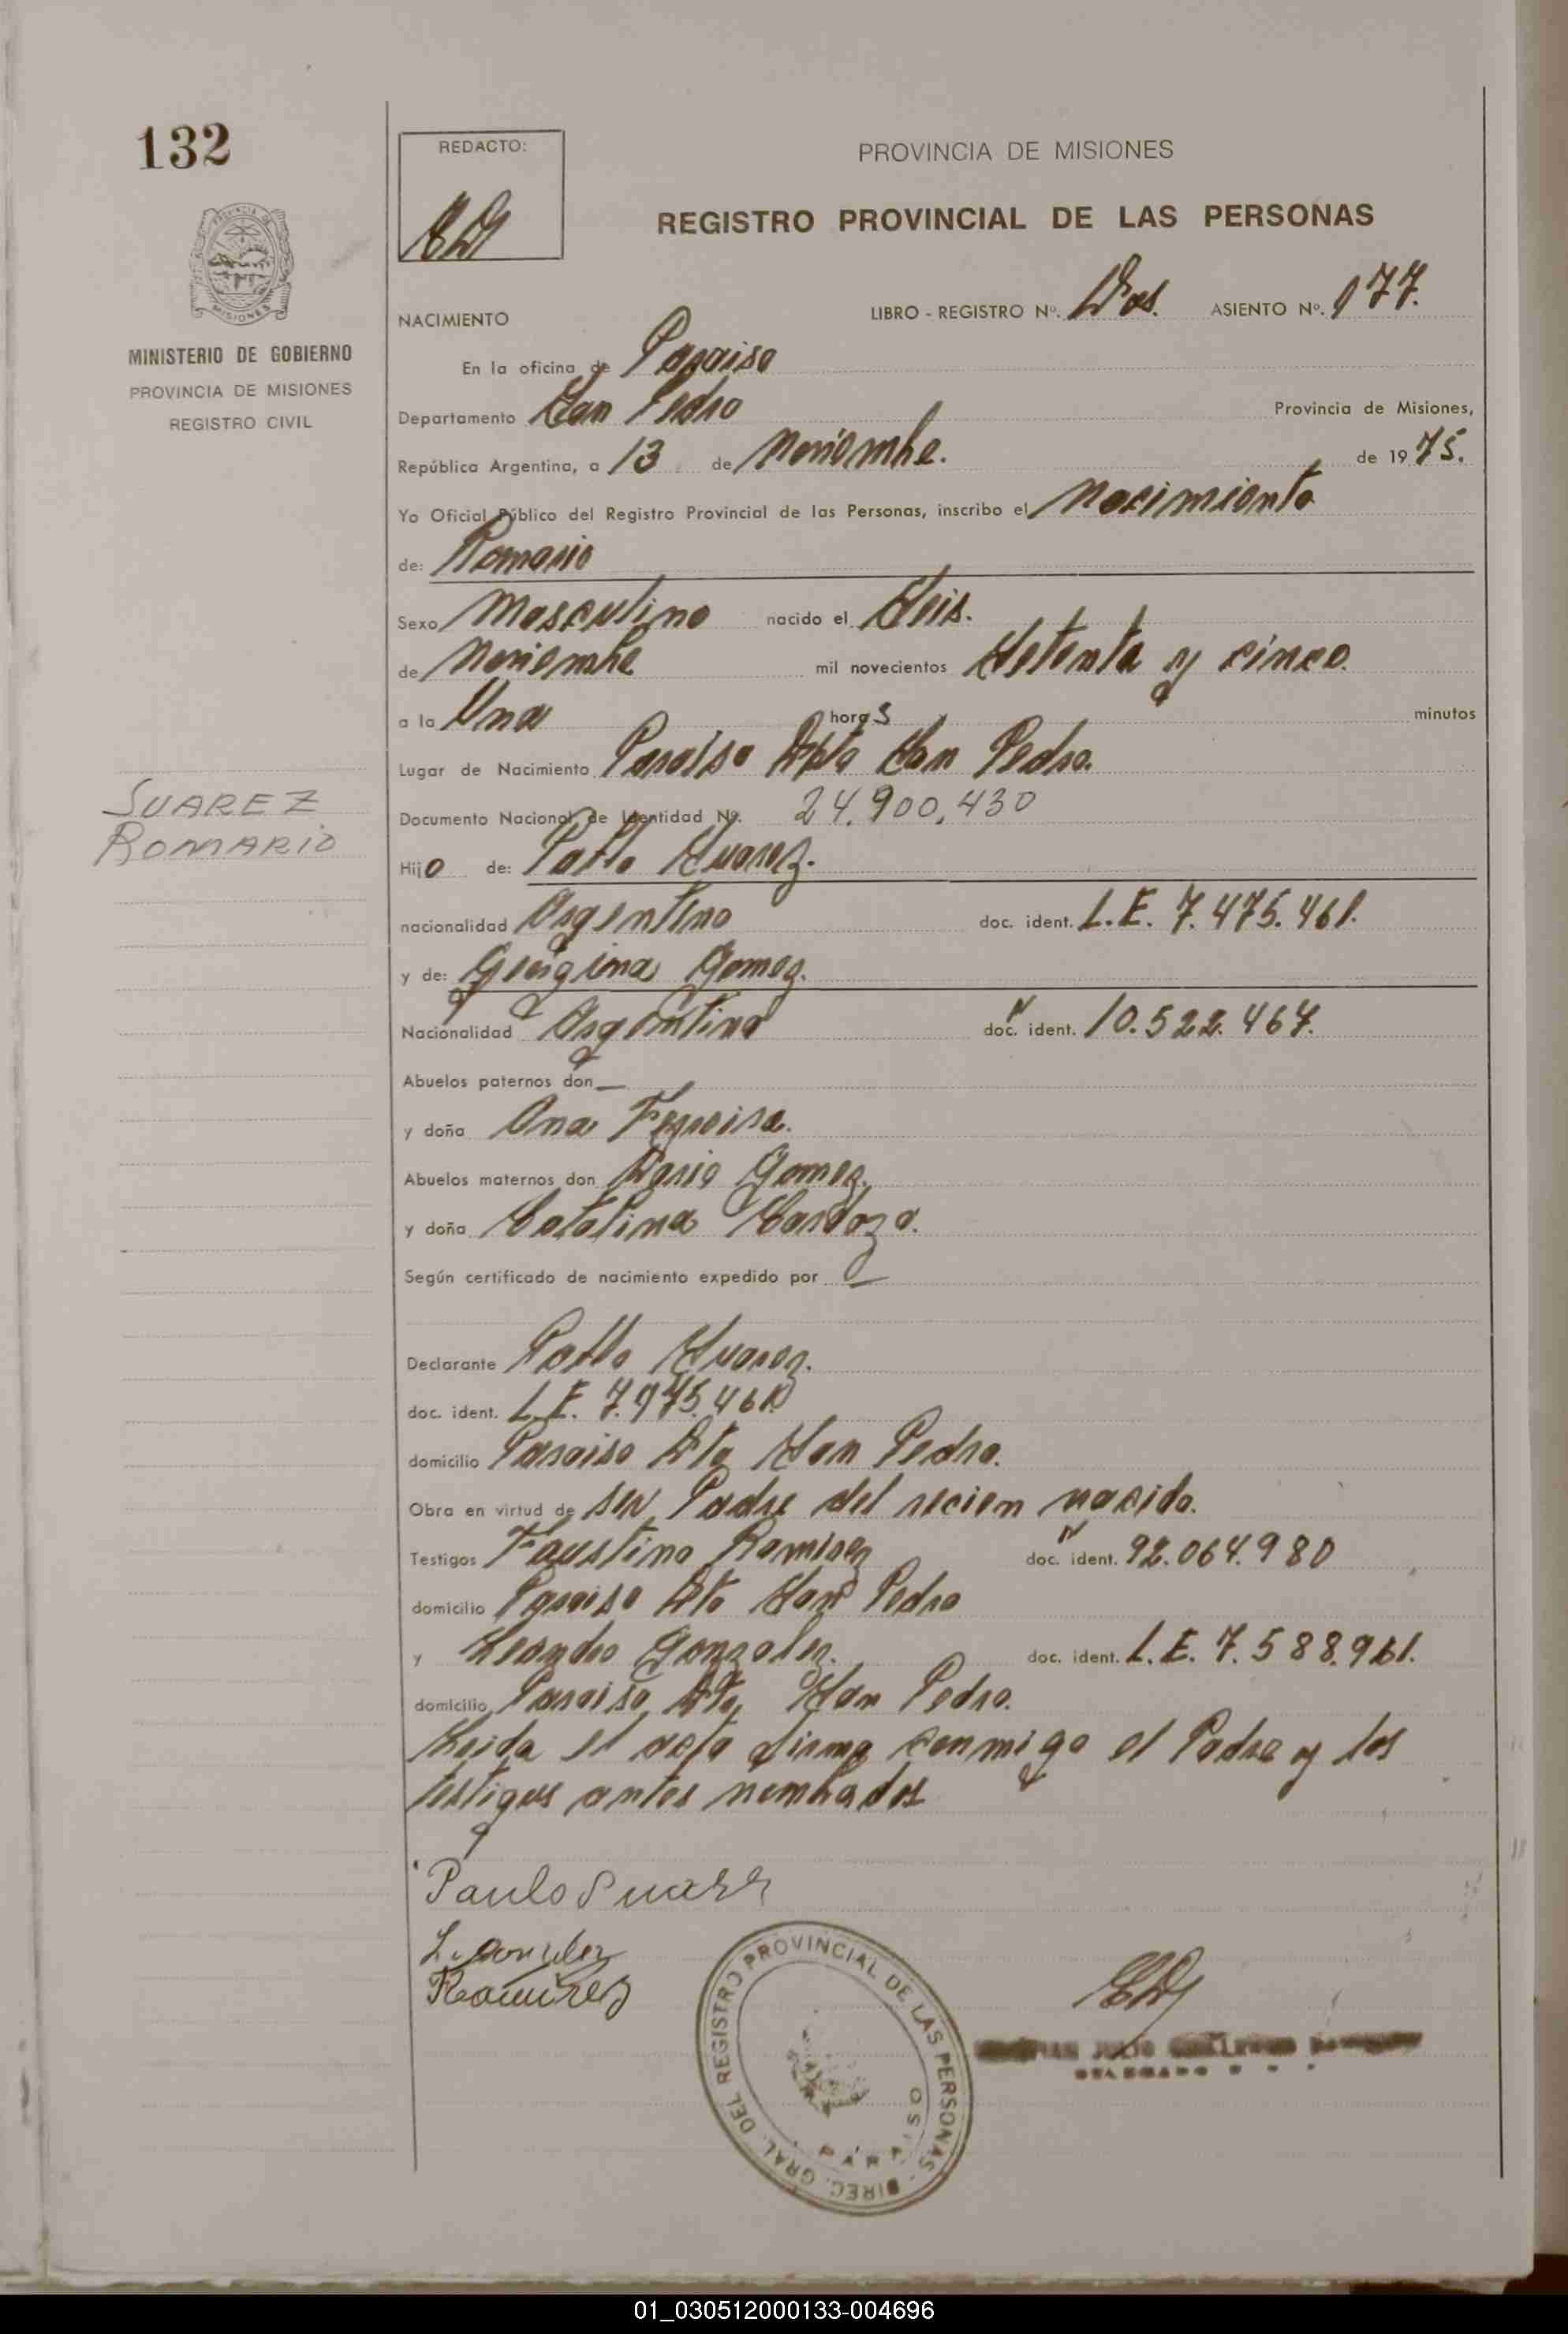 132
REDACTO:
PROVINCIA DE MISIONES
REGISTRO PROVINCIAL DE LAS PERSONAS
MINISTERIO DE GOBIERNO
PROVINCIA DE MISIONES
REGISTRO CIVIL
LIBRO - REGISTRO Nº. Dos. ASIENTO Nº. 177.
NACIMIENTO
En la oficina de Paraiso
Departamento San Pedro Provincia de Misiones,
República Argentina, a 13 de Noviembre. de 1975.
Yo Oficial Público del Registro Provincial de las Personas, inscribo el Nacimiento
de: Romario
Sexo Masculino nacido el Seis.
de Noviembre mil novecientos Setenta y cinco.
a la Una horas minutos
Lugar de Nacimiento Paraiso Dpto San Pedro.
SUAREZ
ROMARIO
Documento Nacional de Identidad Nº. 24.900,430
Hijo de: Pablo Suarez.
nacionalidad Argentino doc. ident. L.E. 7.475.461.
y de: Georgina Gomez.
Nacionalidad Argentina doc. ident. 10.522.467.
Abuelos paternos don —
y doña Ana Ferreira.
Abuelos maternos don Dario Gomez.
y doña Catalina Cardozo.
Según certificado de nacimiento expedido por —
Declarante Pablo Suarez.
doc. ident. L.E. 7.475.461
domicilio Paraiso Dto San Pedro.
Obra en virtud de ser Padre del recien nacido.
Testigos Faustino Ramirez doc. ident. 92.064.980
domicilio Paraiso Dto San Pedro
y Leandro Gonzalez. doc. ident. L.E. 7.588.961.
domicilio Paraiso Dto, San Pedro.
Leida el acta firma conmigo el Padre y los
testigos antes nombrados
Paulo Suarez
L. Gonzalez
Ramirez
DIREC. GRAL. DEL REGISTRO PROVINCIAL DE LAS PERSONAS
PARAISO
JULIO
01_030512000133-004696